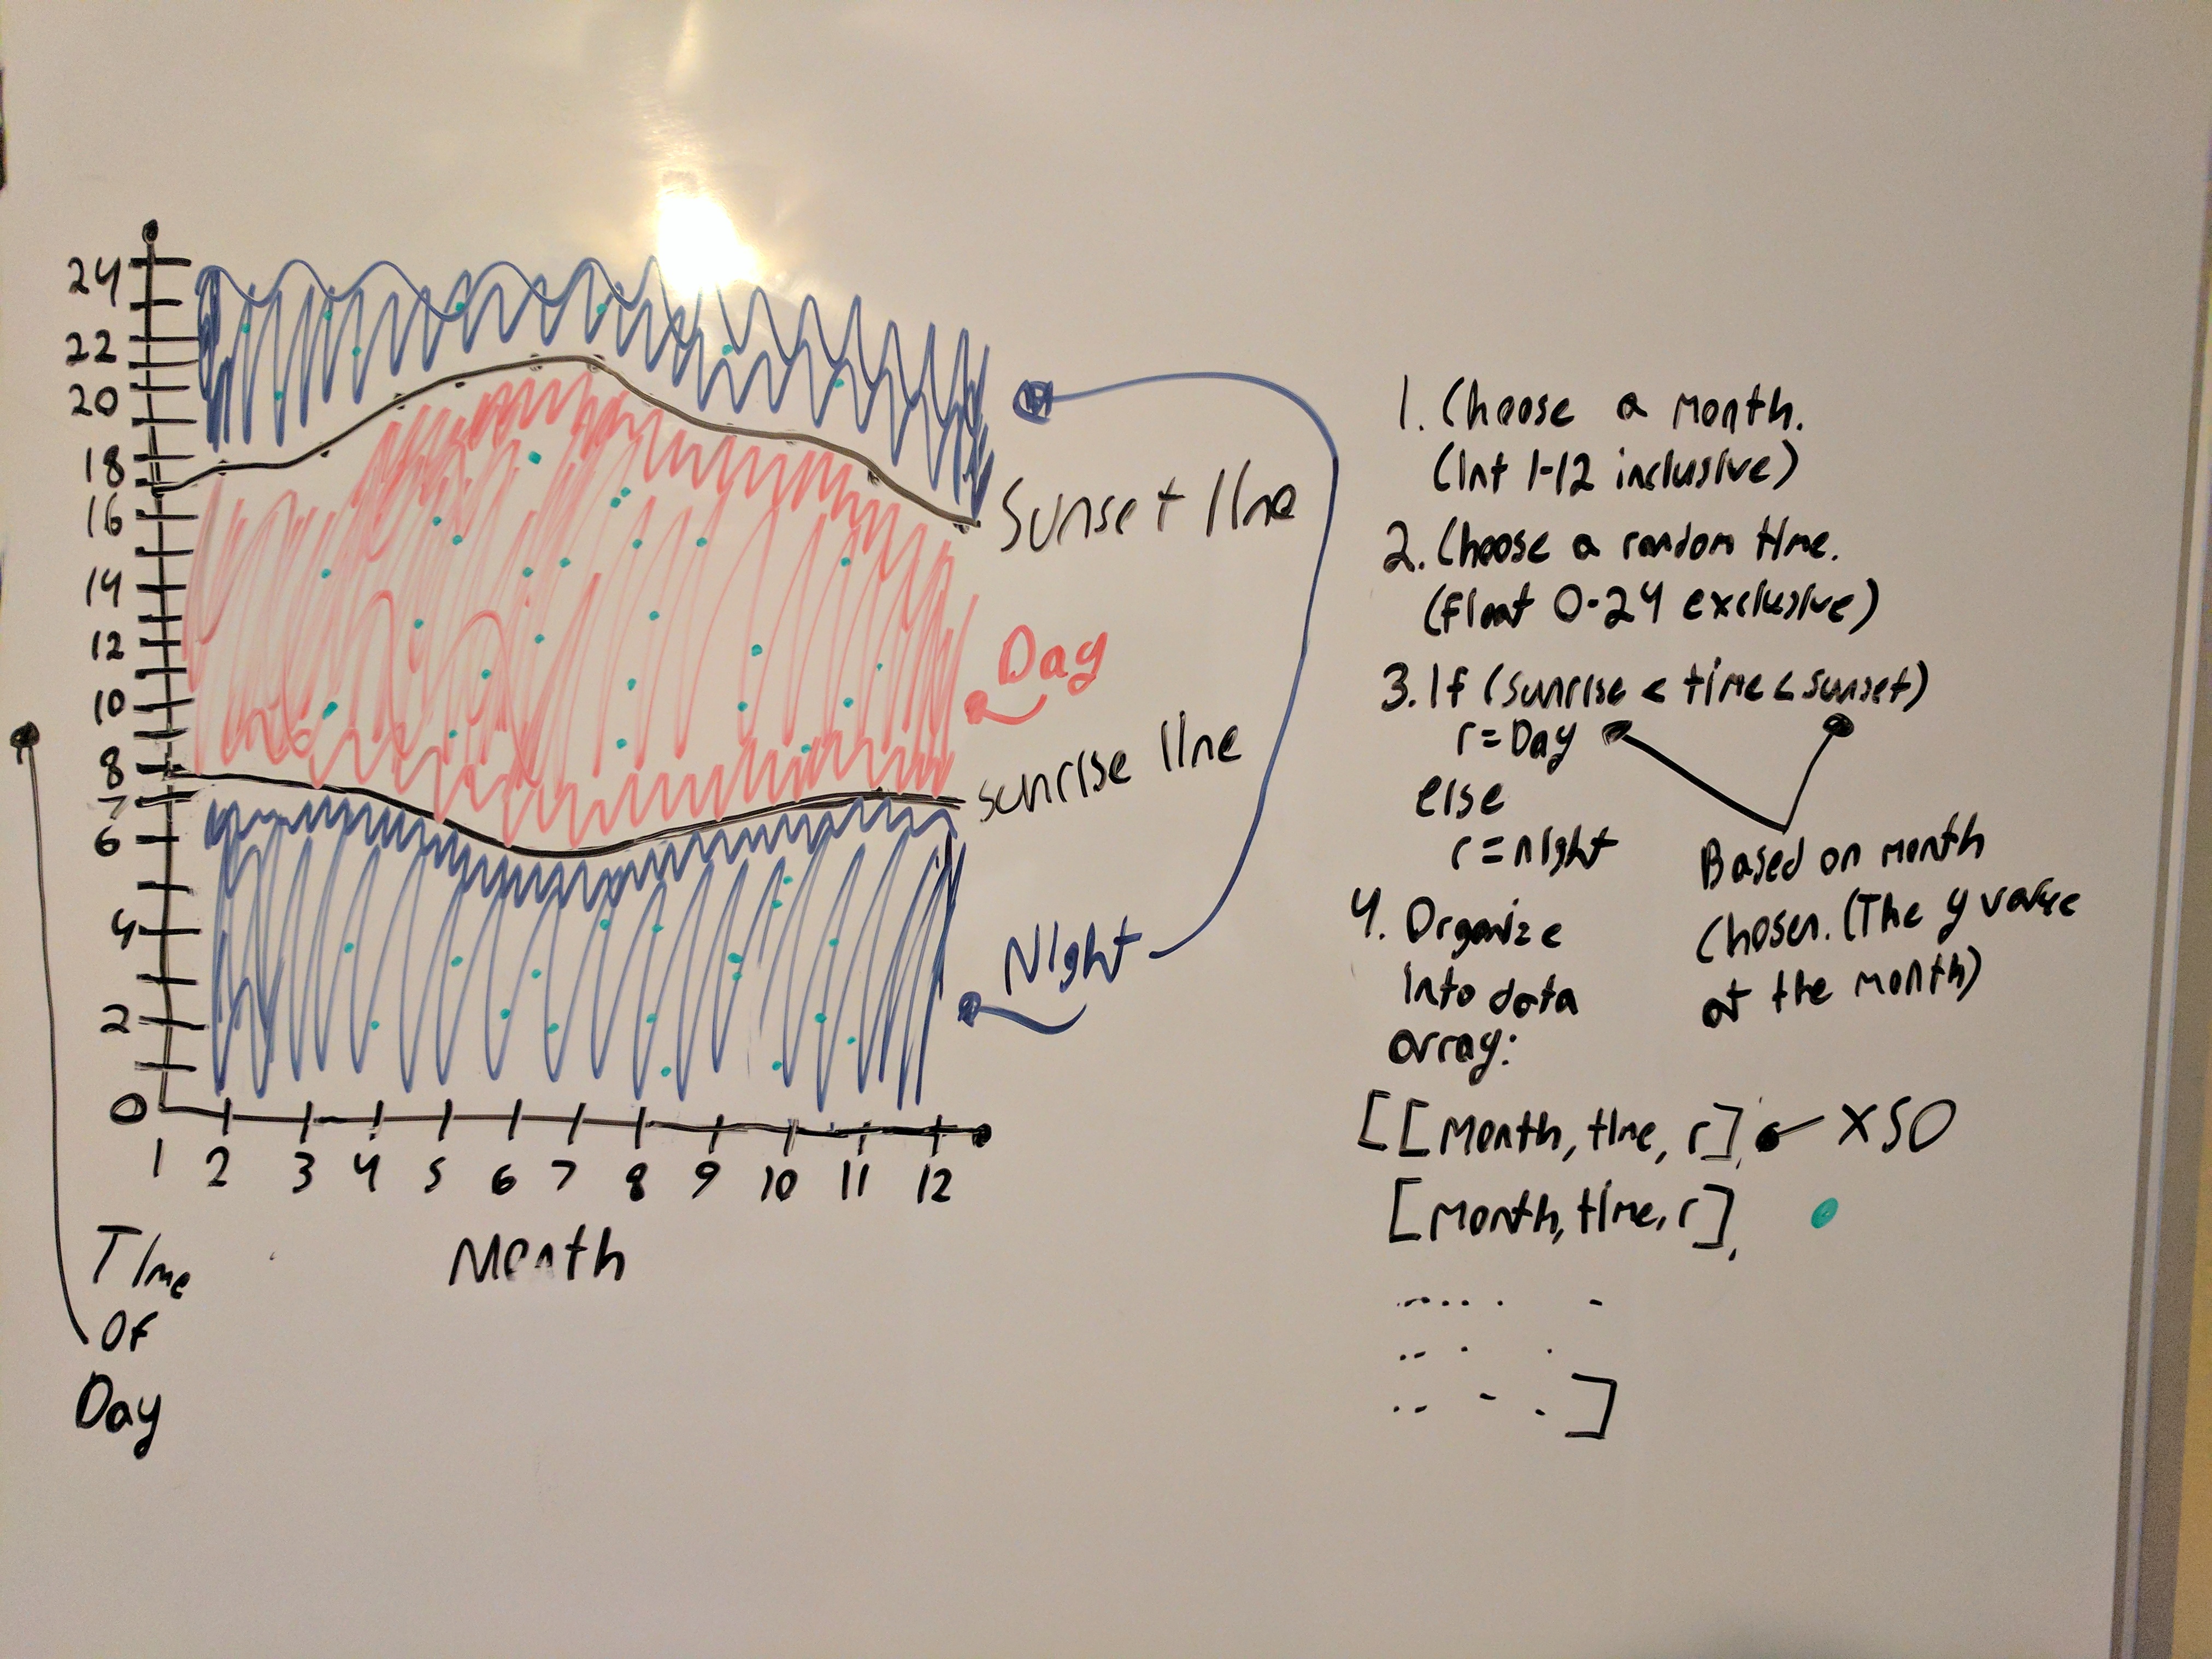 24
22
20
18
16
14
12
10
8
7
6
4
2
0
1 2 3 4 5 6 7 8 9 10 11 12
Month
Time
Of
Day
Sunset line
Day
sunrise line
Night
1. Choose a month.
(Int 1-12 inclusive)
2. Choose a random time.
(Float 0-24 exclusive)
3. If (sunrise < time < sunset)
r = Day
else
r = night
Based on month
chosen. (The y value
at the month)
4. Organize
into data
array:
[[Month, time, r], X50
[month, time, r],
]